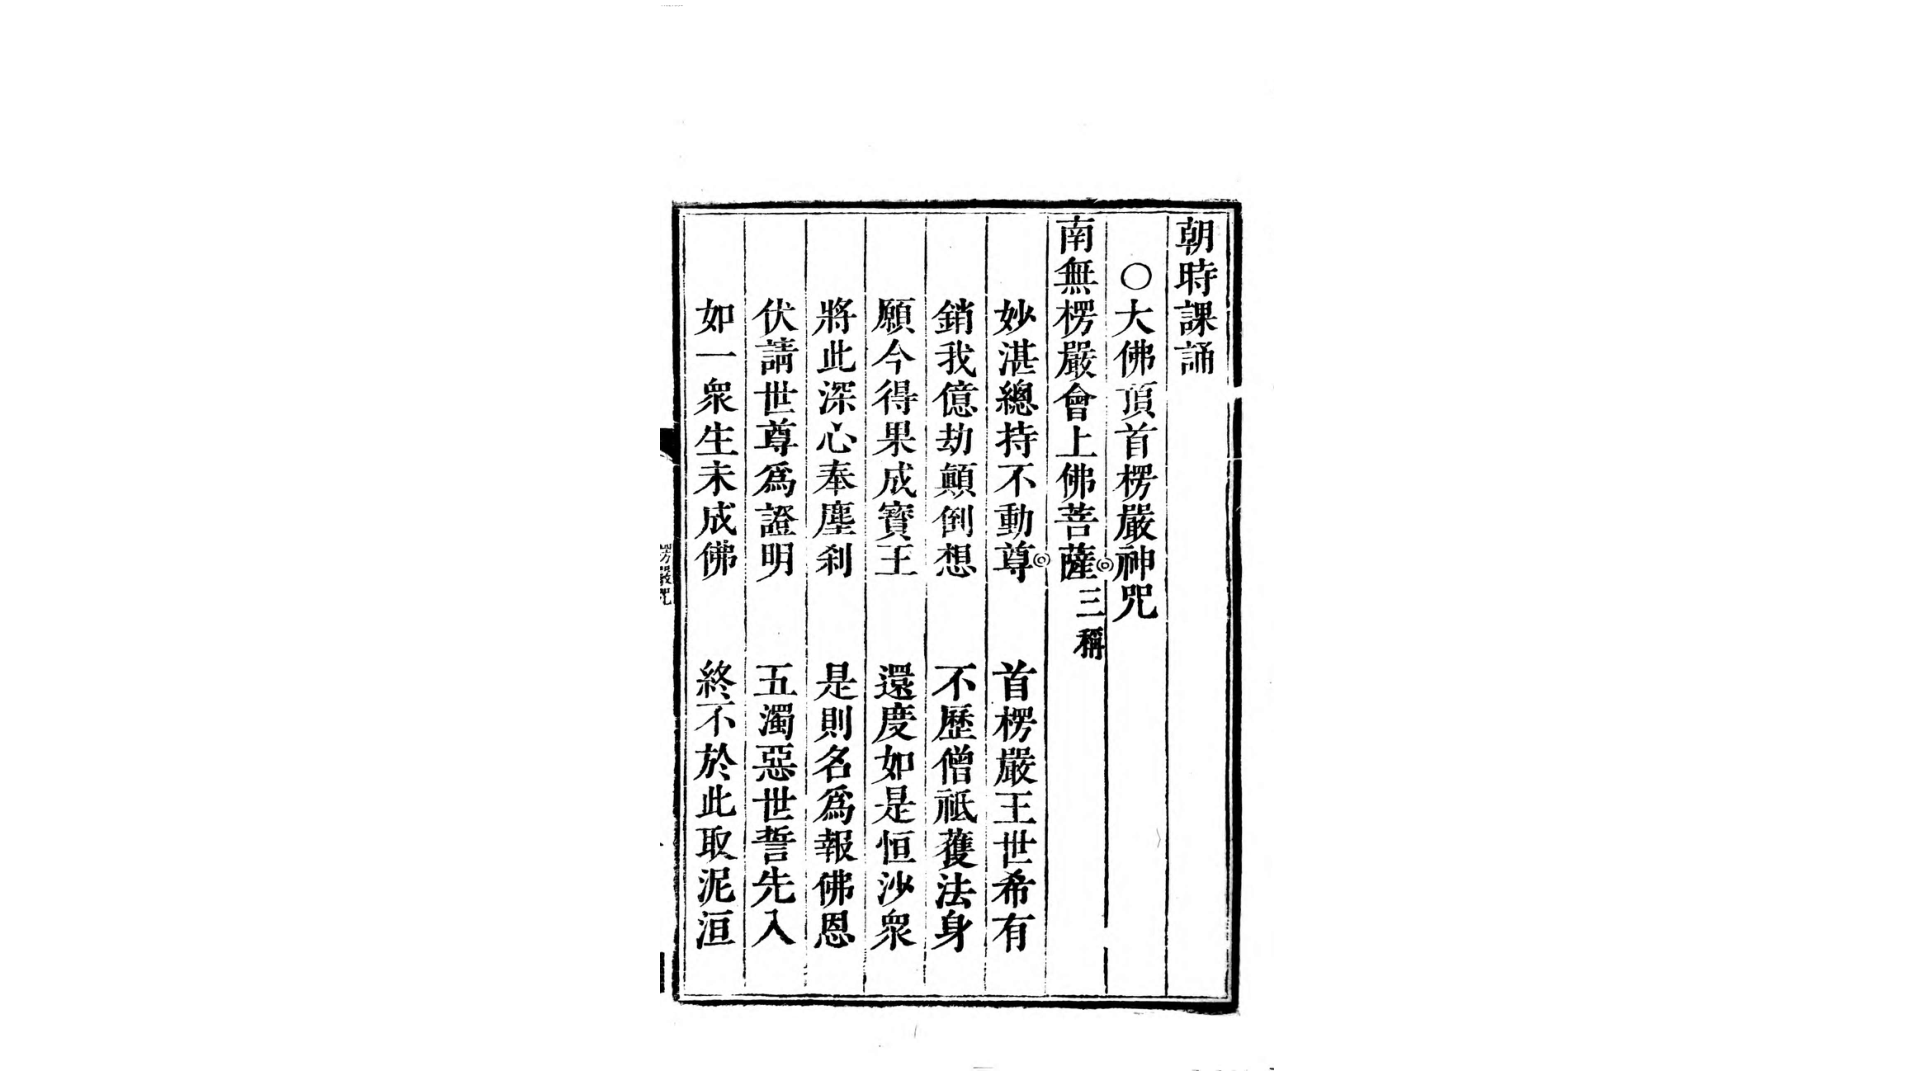 朝時課誦
○大佛頂首楞嚴神咒
南無楞嚴會上佛菩薩三稱
妙湛總持不動尊　首楞嚴王世希有
銷我億劫顛倒想　不歷僧祇獲法身
願今得果成寶王　還度如是恒沙眾
將此深心奉塵剎　是則名爲報佛恩
伏請世尊爲證明　五濁惡世誓先入
如一眾生未成佛　終不於此取泥洹